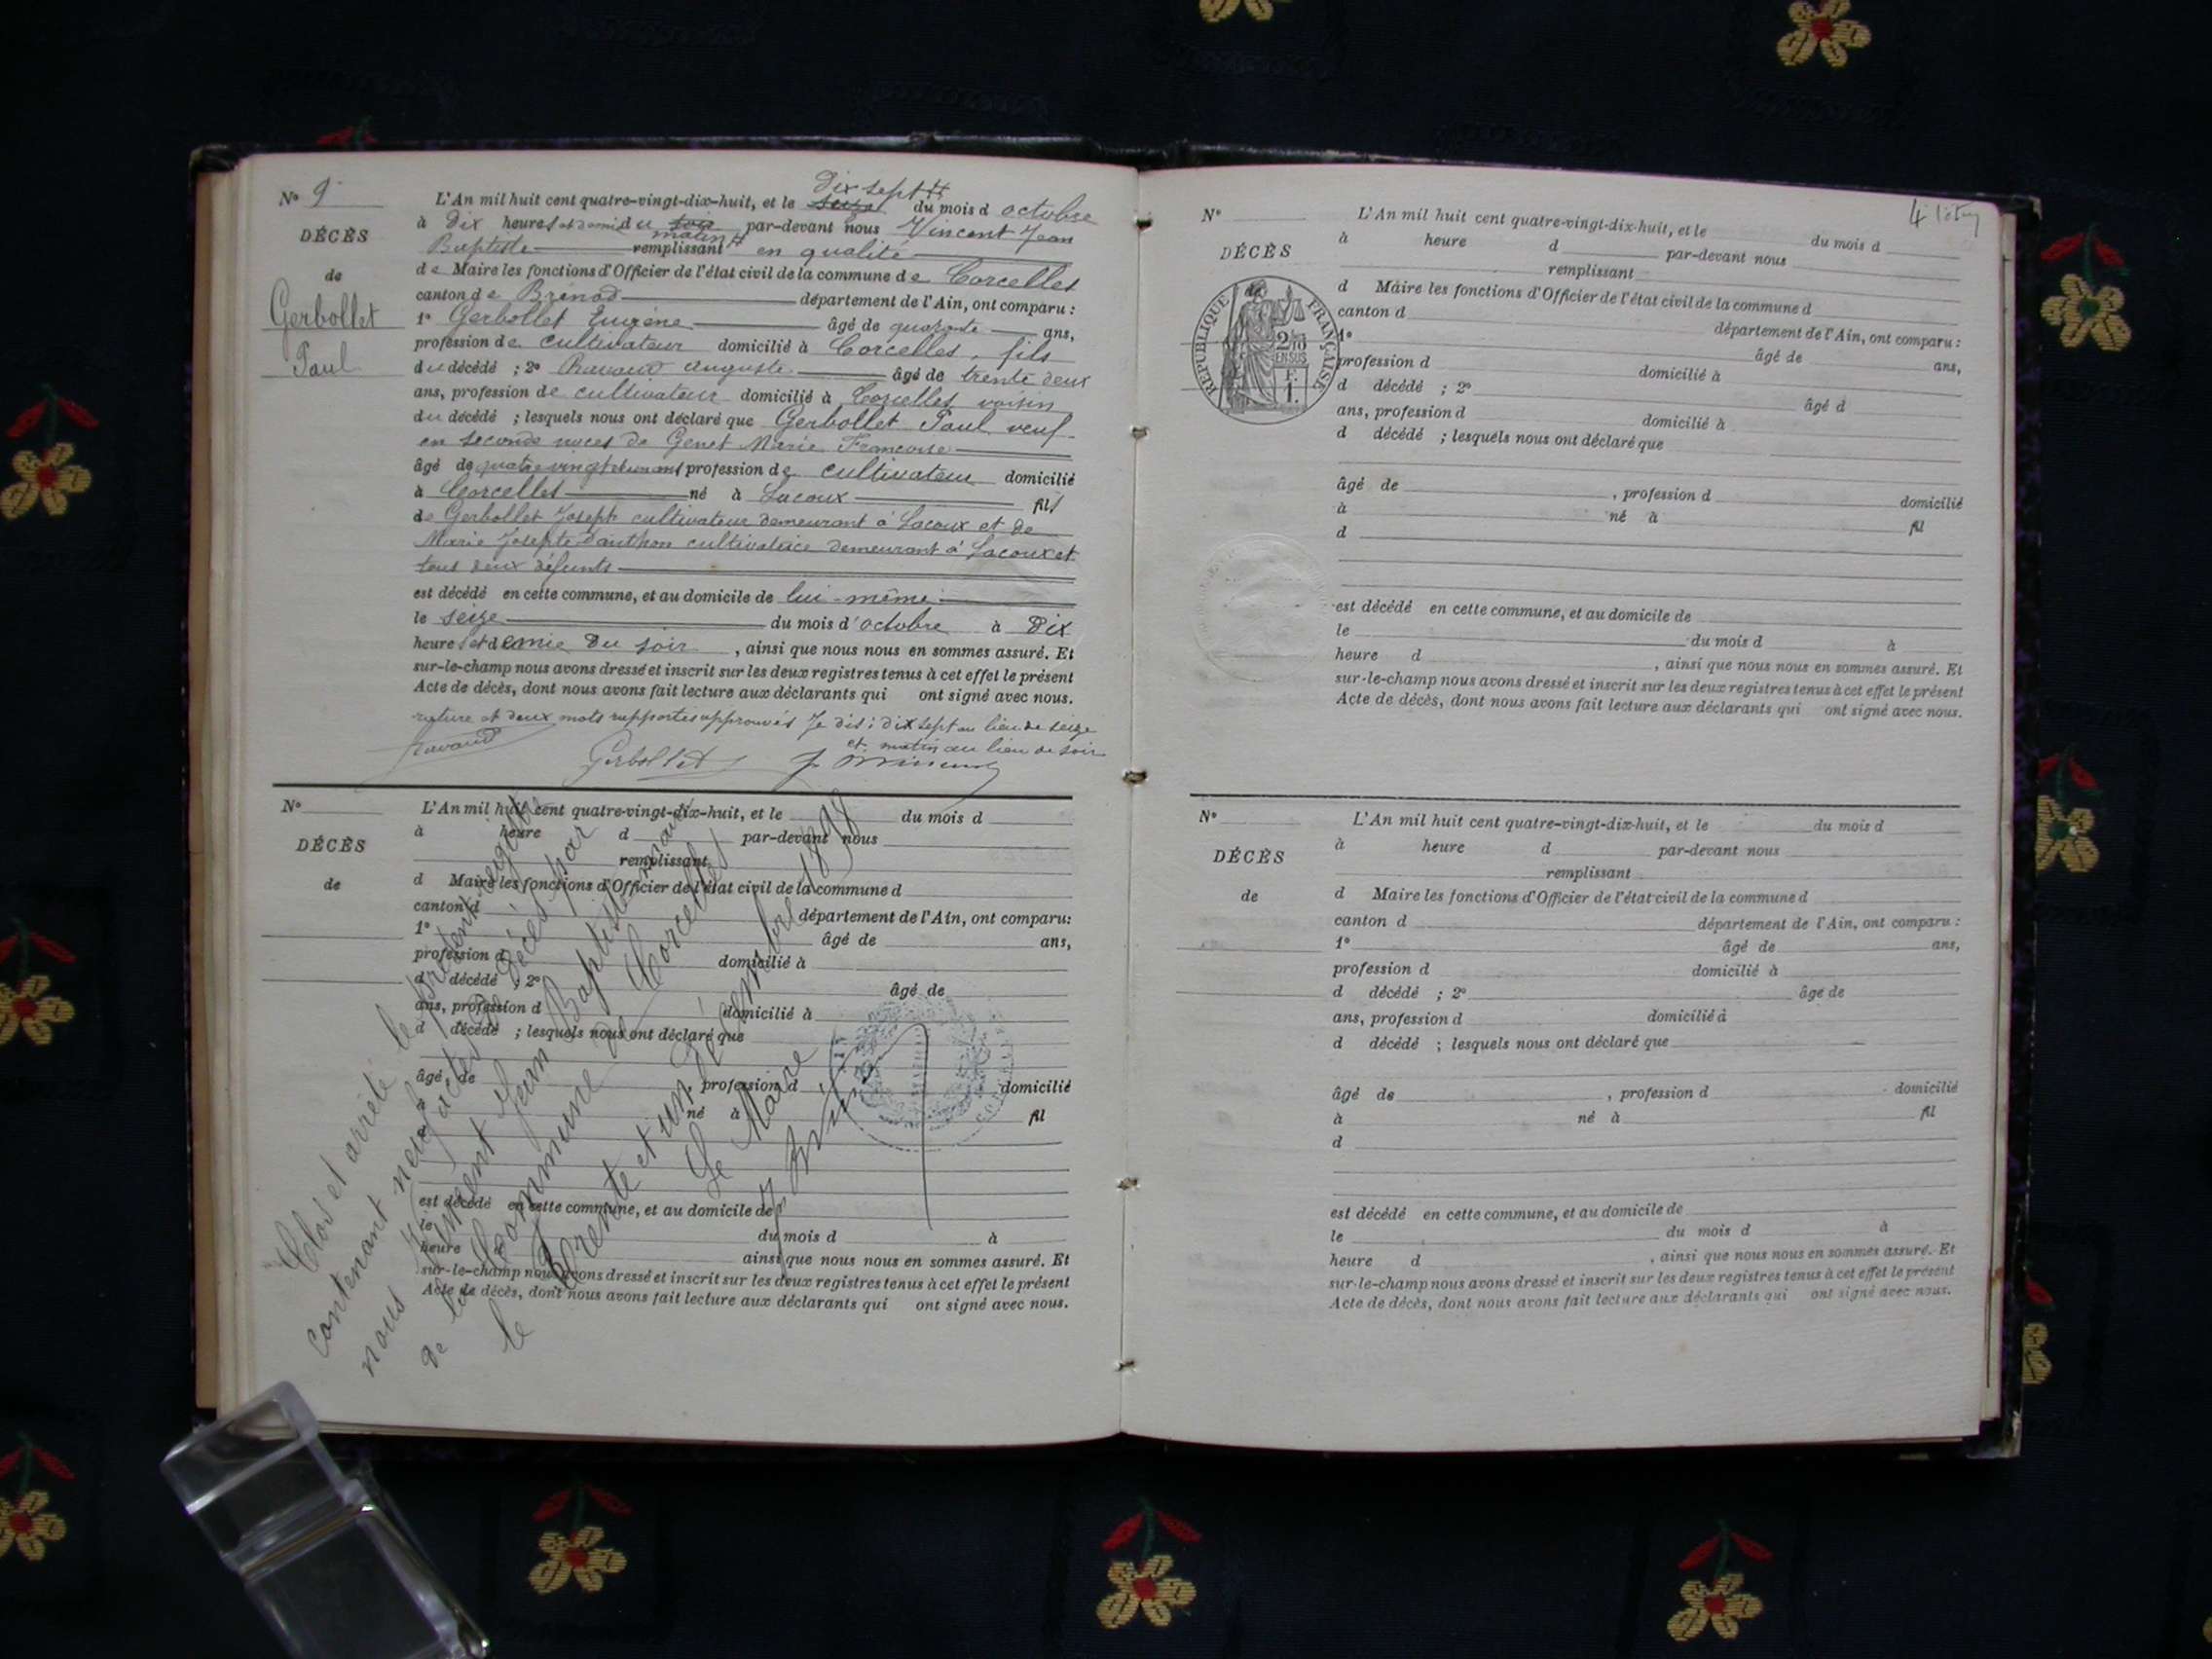 N° 9
DÉCÈS
de
Gerbollet
Paul
Dix sept
L'An mil huit cent quatre-vingt-dix-huit, et le seize du mois d octobre
à Dix heures et demie du soir par-devant nous Vincent Jean
matin
Baptiste remplissant en qualité
de Maire les fonctions d'Officier de l'état civil de la commune de Corcelles
canton de Brénod département de l'Ain, ont comparu :
1° Gerbollet Eugène âgé de quarante ans,
profession de cultivateur domicilié à Corcelles, fils
du décédé ; 2° Ravaud Auguste âgé de trente deux
ans, profession de cultivateur domicilié à Corcelles voisin
du décédé ; lesquels nous ont déclaré que Gerbollet Paul veuf
en seconde noces de Genet Marie Françoise
âgé de quatre vingt profession de cultivateur domicilié
à Corcelles né à Lacoux fils
de Gerbollet Joseph cultivateur demeurant à Lacoux et de
Marie Josephte Danthon cultivatrice demeurant à Lacoux et
tous deux défunts
est décédé en cette commune, et au domicile de lui-même
le seize du mois d'octobre à Dix
heures et demie du soir, ainsi que nous nous en sommes assuré. Et
sur-le-champ nous avons dressé et inscrit sur les deux registres tenus à cet effet le présent
Acte de décès, dont nous avons fait lecture aux déclarants qui ont signé avec nous.
rature et deux mots rapportés approuvés Je dis : dix sept au lieu de seize
et matin au lieu de soir
Ravaud Gerbollet J Vincent
N°
DÉCÈS
de
L'An mil huit cent quatre-vingt-dix-huit, et le du mois d
à heure d par-devant nous
remplissant
d Maire les fonctions d'Officier de l'état civil de la commune d
canton d département de l'Ain, ont comparu :
1° âgé de ans,
profession d domicilié à
d décédé ; 2° âgé de
ans, profession d domicilié à
d décédé ; lesquels nous ont déclaré que
âgé de , profession d domicilié
à né à fil
d
est décédé en cette commune, et au domicile de
le du mois d à
heure d ainsi que nous nous en sommes assuré. Et
sur-le-champ nous avons dressé et inscrit sur les deux registres tenus à cet effet le présent
Acte de décès, dont nous avons fait lecture aux déclarants qui ont signé avec nous.
Clos et arrêté le présent registre
contenant neuf actes de décès par
nous Vincent Jean Baptiste maire
de la Commune de Corcelles
le trente et un décembre 1898
Le Maire
J Vincent
4
N°
DÉCÈS
de
RÉPUBLIQUE FRANÇAISE
2/10
EN SUS
F.
1.
L'An mil huit cent quatre-vingt-dix-huit, et le du mois d
à heure d par-devant nous
remplissant
d Maire les fonctions d'Officier de l'état civil de la commune d
canton d département de l'Ain, ont comparu :
1° âgé de ans,
profession d domicilié à
d décédé ; 2° âgé d
ans, profession d domicilié à
d décédé ; lesquels nous ont déclaré que
âgé de , profession d domicilié
à né à fil
d
est décédé en cette commune, et au domicile de
le du mois d à
heure d , ainsi que nous nous en sommes assuré. Et
sur-le-champ nous avons dressé et inscrit sur les deux registres tenus à cet effet le présent
Acte de décès, dont nous avons fait lecture aux déclarants qui ont signé avec nous.
N°
DÉCÈS
de
L'An mil huit cent quatre-vingt-dix-huit, et le du mois d
à heure d par-devant nous
remplissant
d Maire les fonctions d'Officier de l'état civil de la commune d
canton d département de l'Ain, ont comparu :
1° âgé de ans,
profession d domicilié à
d décédé ; 2° âgé de
ans, profession d domicilié à
d décédé ; lesquels nous ont déclaré que
âgé de , profession d domicilié
à né à fil
d
est décédé en cette commune, et au domicile de
le du mois d à
heure d , ainsi que nous nous en sommes assuré. Et
sur-le-champ nous avons dressé et inscrit sur les deux registres tenus à cet effet le présent
Acte de décès, dont nous avons fait lecture aux déclarants qui ont signé avec nous.